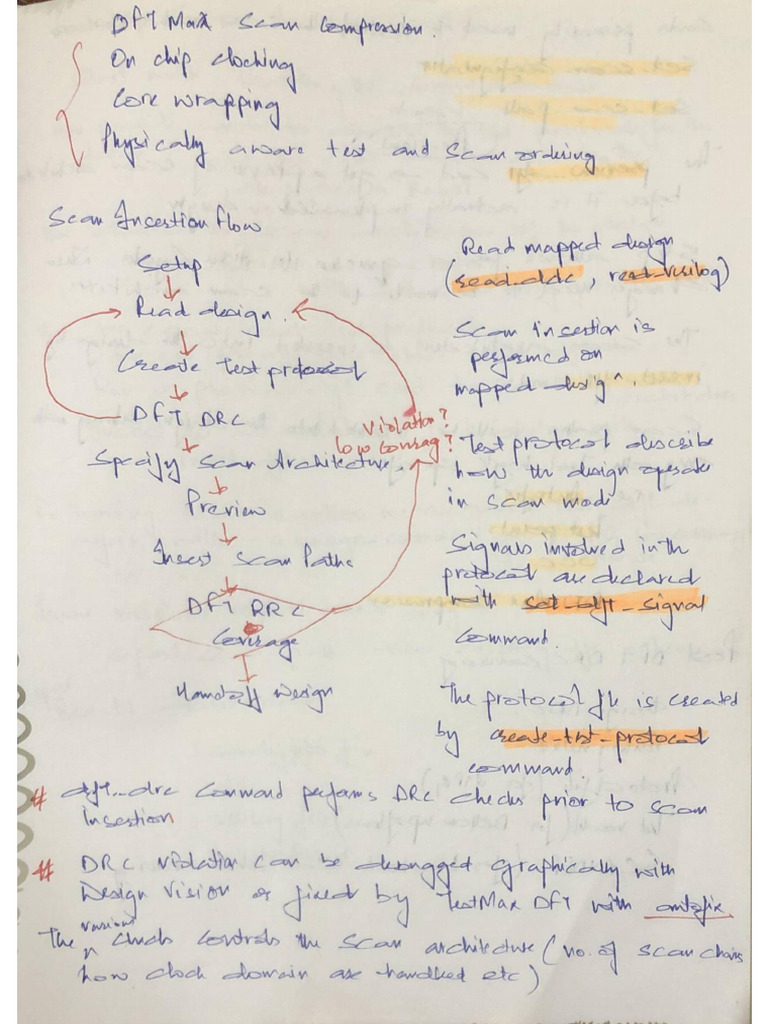 DFT Max Scan Compression.
On chip clocking
Core wrapping
Physically aware test and Scan ordering
Scan Insertion flow
Setup
Read design.
Create Test protocol
DFT DRC
Specify Scan Architecture.
Preview
Insert Scan Paths
DFT DRC
Coverage
Handoff Design
Violation?
low coverag?
Read mapped design
(read_ddc, read_verilog)
Scan Insertion is
performed on
mapped design.
Test protocol describe
how the design operate
in scan mode
Signals involved in the
protocol are declared
with set_dft_signal
command.
The protocol file is created
by create_test_protocol
command.
# dft_drc Command performs DRC checks prior to scan
Insertion
# DRC violation can be debugged Graphically with
Design Vision or fixed by TestMax DFT with autofix.
The various checks controls the scan architecture (no. of scan chains
how clock domain are handled etc)